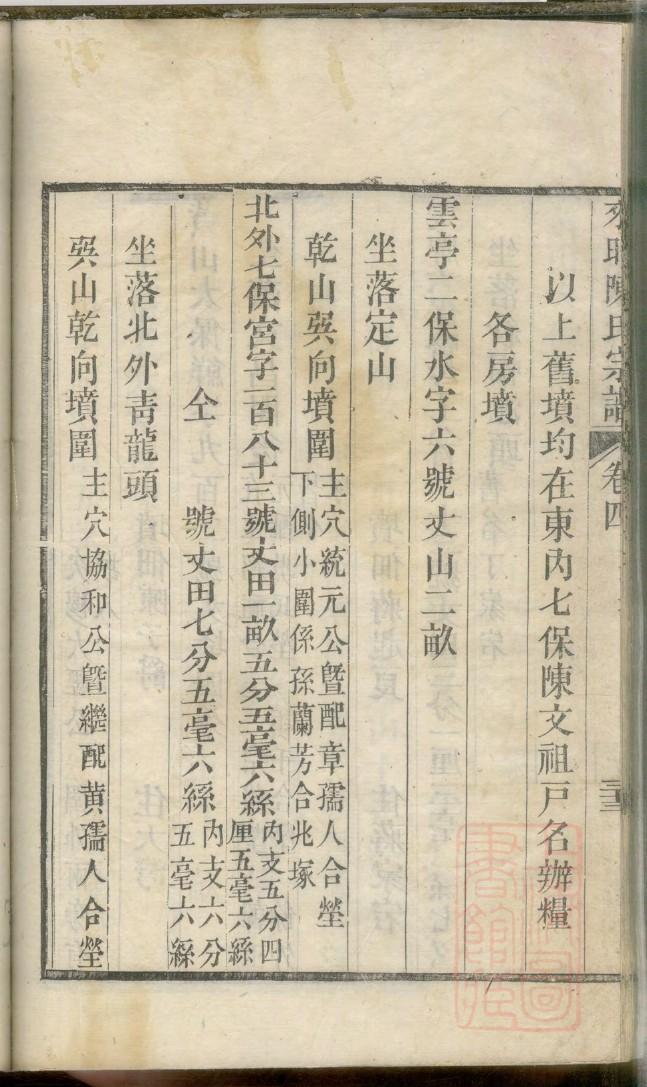 陳氏宗譜 卷四
以上舊墳均在東內七保陳文祖戸名辦糧
各房墳
雲亭二保水字六號丈山二畝
坐落定山
乾山巽向墳圍
主穴統元公暨配章孺人合塋
下側小圍係孫蘭芳合兆塚
北外七保宮字一百八十三號丈田一畝五分五毫六絲
內支五分四
厘五毫六絲
仝 號丈田七分五毫六絲
內支六分
五毫六絲
坐落北外靑龍頭
巽山乾向墳圍 主穴協和公暨繼配黄孺人合塋